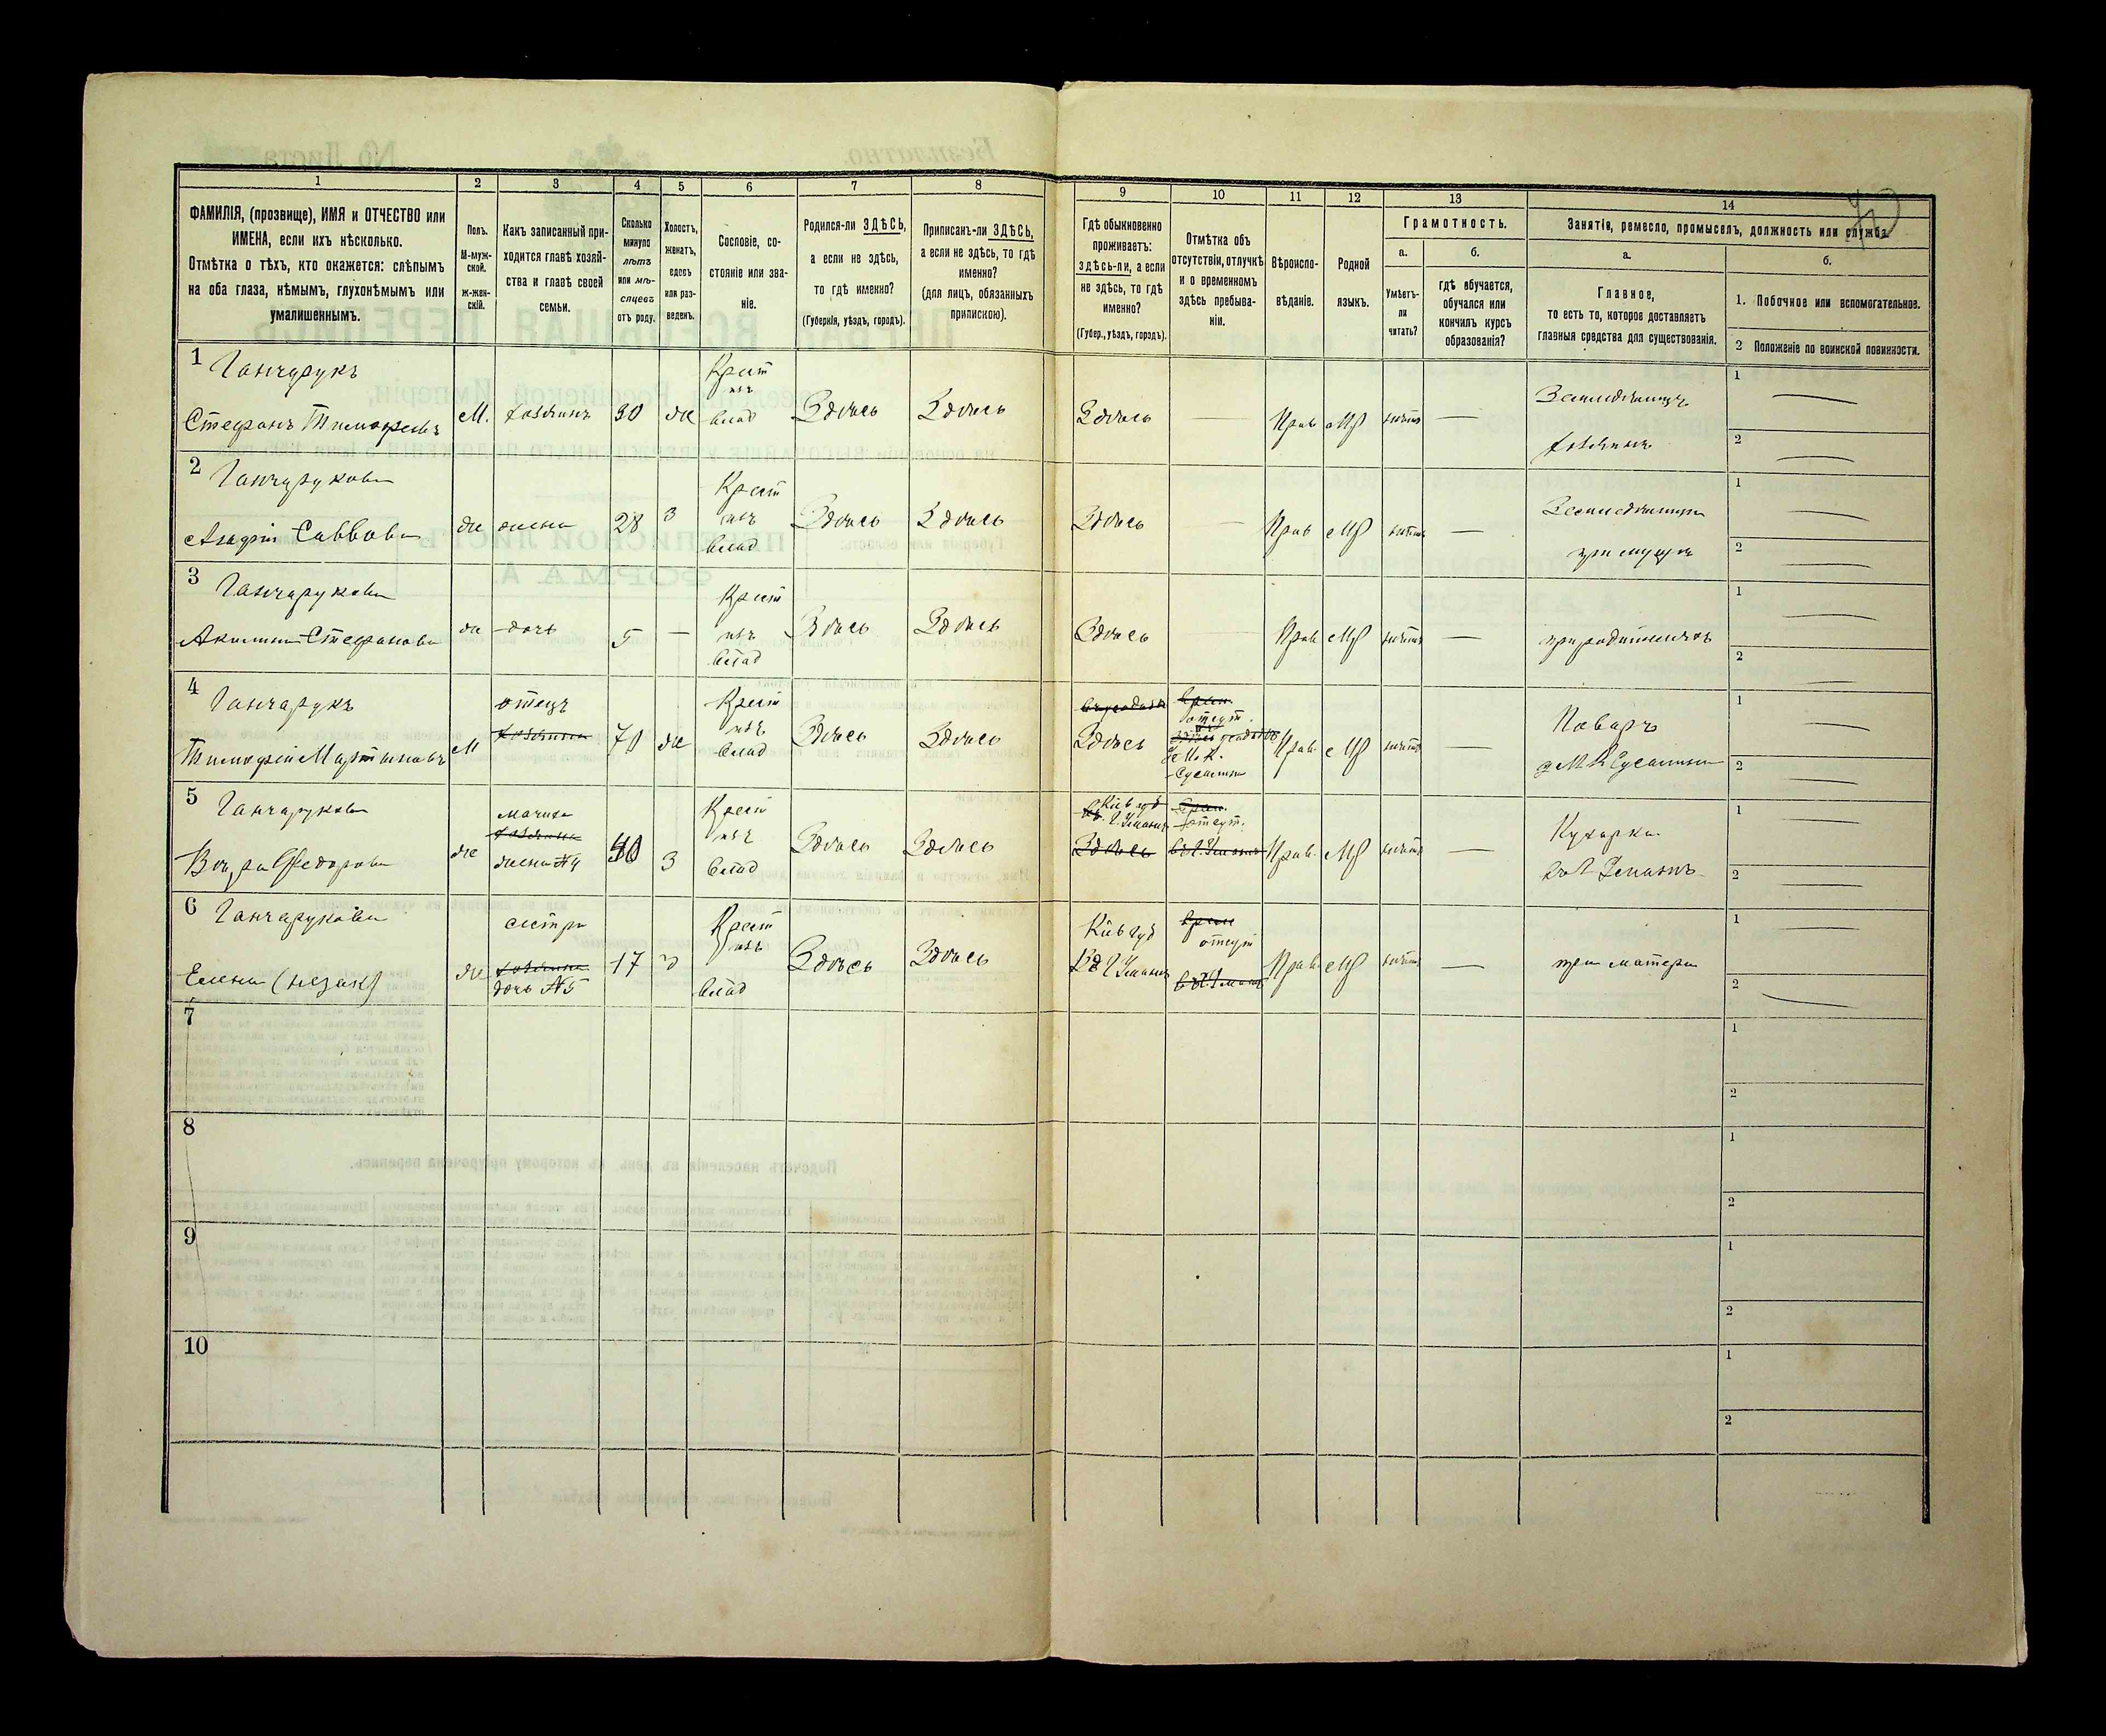 1 2 3 4 5 6 7 8 9 10 11 12 13 14
ФАМИЛІЯ, (прозвище), ИМЯ и ОТЧЕСТВО или
ИМЕНА, если ихъ нѣсколько.
Отмѣтка о тѣхъ, кто окажется: слѣпымъ
на оба глаза, нѣмымъ, глухонѣмымъ или
умалишеннымъ.
Полъ.
М-муж-
ской.
ж-жен-
скій.
Какъ записанный при-
ходится главѣ хозяй-
ства и главѣ своей
семьи.
Сколько
минуло
лѣтъ
или мѣ-
сяцевъ
отъ роду.
Холостъ,
женатъ,
вдовъ
или раз-
веденъ.
Сословіе, со-
стояніе или зва-
ніе.
Родился-ли ЗДѢСЬ,
а если не здѣсь,
то гдѣ именно?
(Губернія, уѣздъ, городъ).
Приписанъ-ли ЗДѢСЬ,
а если не здѣсь, то гдѣ
именно?
(для лицъ, обязанныхъ
припискою).
Гдѣ обыкновенно
проживаетъ:
здѣсь-ли, а если
не здѣсь, то гдѣ
именно?
(Губер., уѣздъ, городъ).
Отмѣтка объ
отсутствіи, отлучкѣ
и о временномъ
здѣсь пребыва-
ніи.
Вѣроиспо-
вѣданіе.
Родной
языкъ.
Грамотность.
а.
Умѣетъ-
ли
читать?
б.
гдѣ обучается,
обучался или
кончилъ курсъ
образованія?
Занятія, ремесло, промыселъ, должность или служба.
а.
Главное,
то есть то, которое доставляетъ
главныя средства для существованія.
б.
1. Побочное или вспомогательное.
2 Положеніе по воинской повинности.
1 Ганчарукъ Крест
изъ
Стефанъ Тимофеевъ М. хозяинъ 30 же влад Здѣсь Здѣсь Здѣсь — Прав МР — Земледѣлецъ 1 —
хозяинъ 2 —
2 Ганчарукова Крест
изъ
Агафія Саввова же жена 28 з влад Здѣсь Здѣсь Здѣсь — Прав МР — 1 —
при мужѣ 2 —
3 Ганчарукова Крест
изъ
Акилина Стефанова же дочь 5 — влад Здѣсь Здѣсь Здѣсь Прав МР — при родителяхъ 1 —
2 —
4 Ганчарукъ отецъ Крест
изъ
хозяина
Тимофей Мартыновъ М 70 же влад Здѣсь Здѣсь Здѣсь Прав МР — Поваръ 1 —
2 —
5 Ганчарукова мачиха Крест
изъ
хозяина
Федорова же жена №4 з влад Здѣсь Здѣсь Кіев губ
Г. Умань
Здѣсь Прав МР — Кухарка 1 —
Умань 2 —
6 Ганчарукова сестра Крест
изъ
хозяина
Елена (незак) же дочь №5 17 д влад Здѣсь Здѣсь Кіев губ
Г. Умань отсут Прав МР — при матери 1 —
2 —
7 1
2
8 1
2
9 1
2
10 1
2